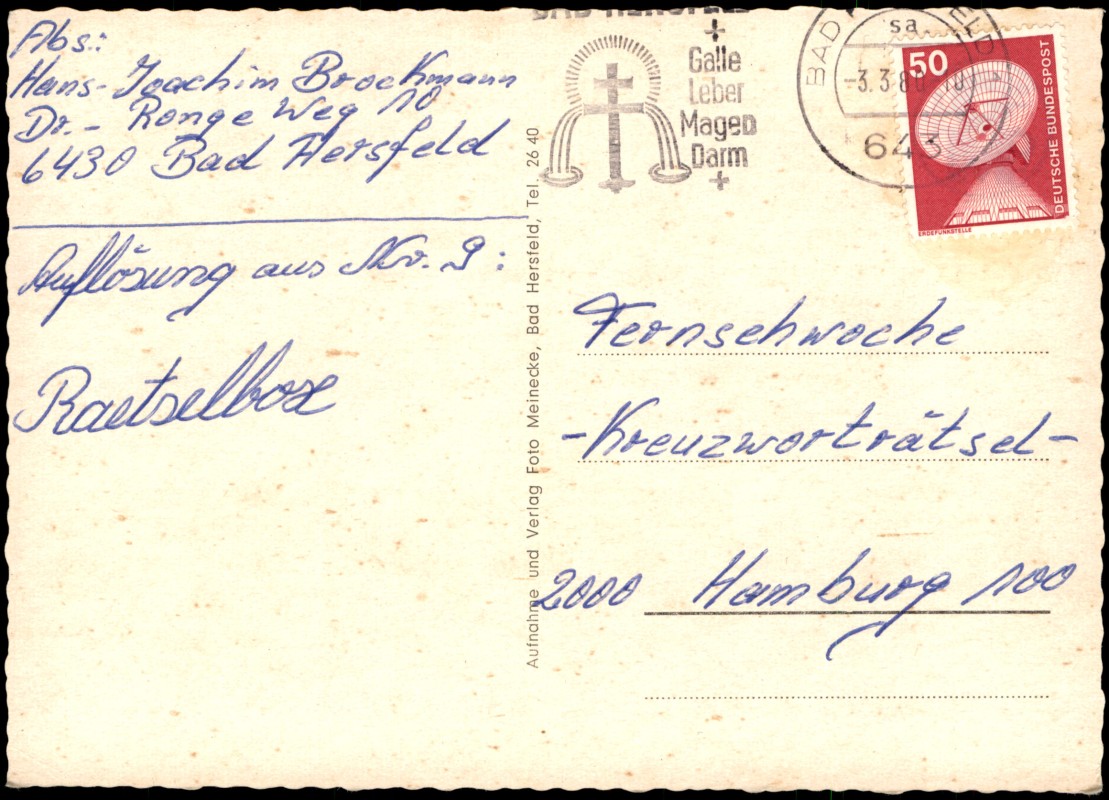 Abs.:
Hans-Joachim Brockmann
Dr.- Ronge Weg 10
6430 Bad Hersfeld
Auflösung aus Nr. 9:
Raetselbox
Aufnahme und Verlag Foto Meinecke, Bad Hersfeld, Tel. 26 40
BAD HERSFELD
Galle
Leber
Magen
Darm
BAD
ELD
sa
-3.3.8
643
50
DEUTSCHE BUNDESPOST
ERDEFUNKSTELLE
Fernsehwoche
-Kreuzworträtsel-
2000 Hamburg 100